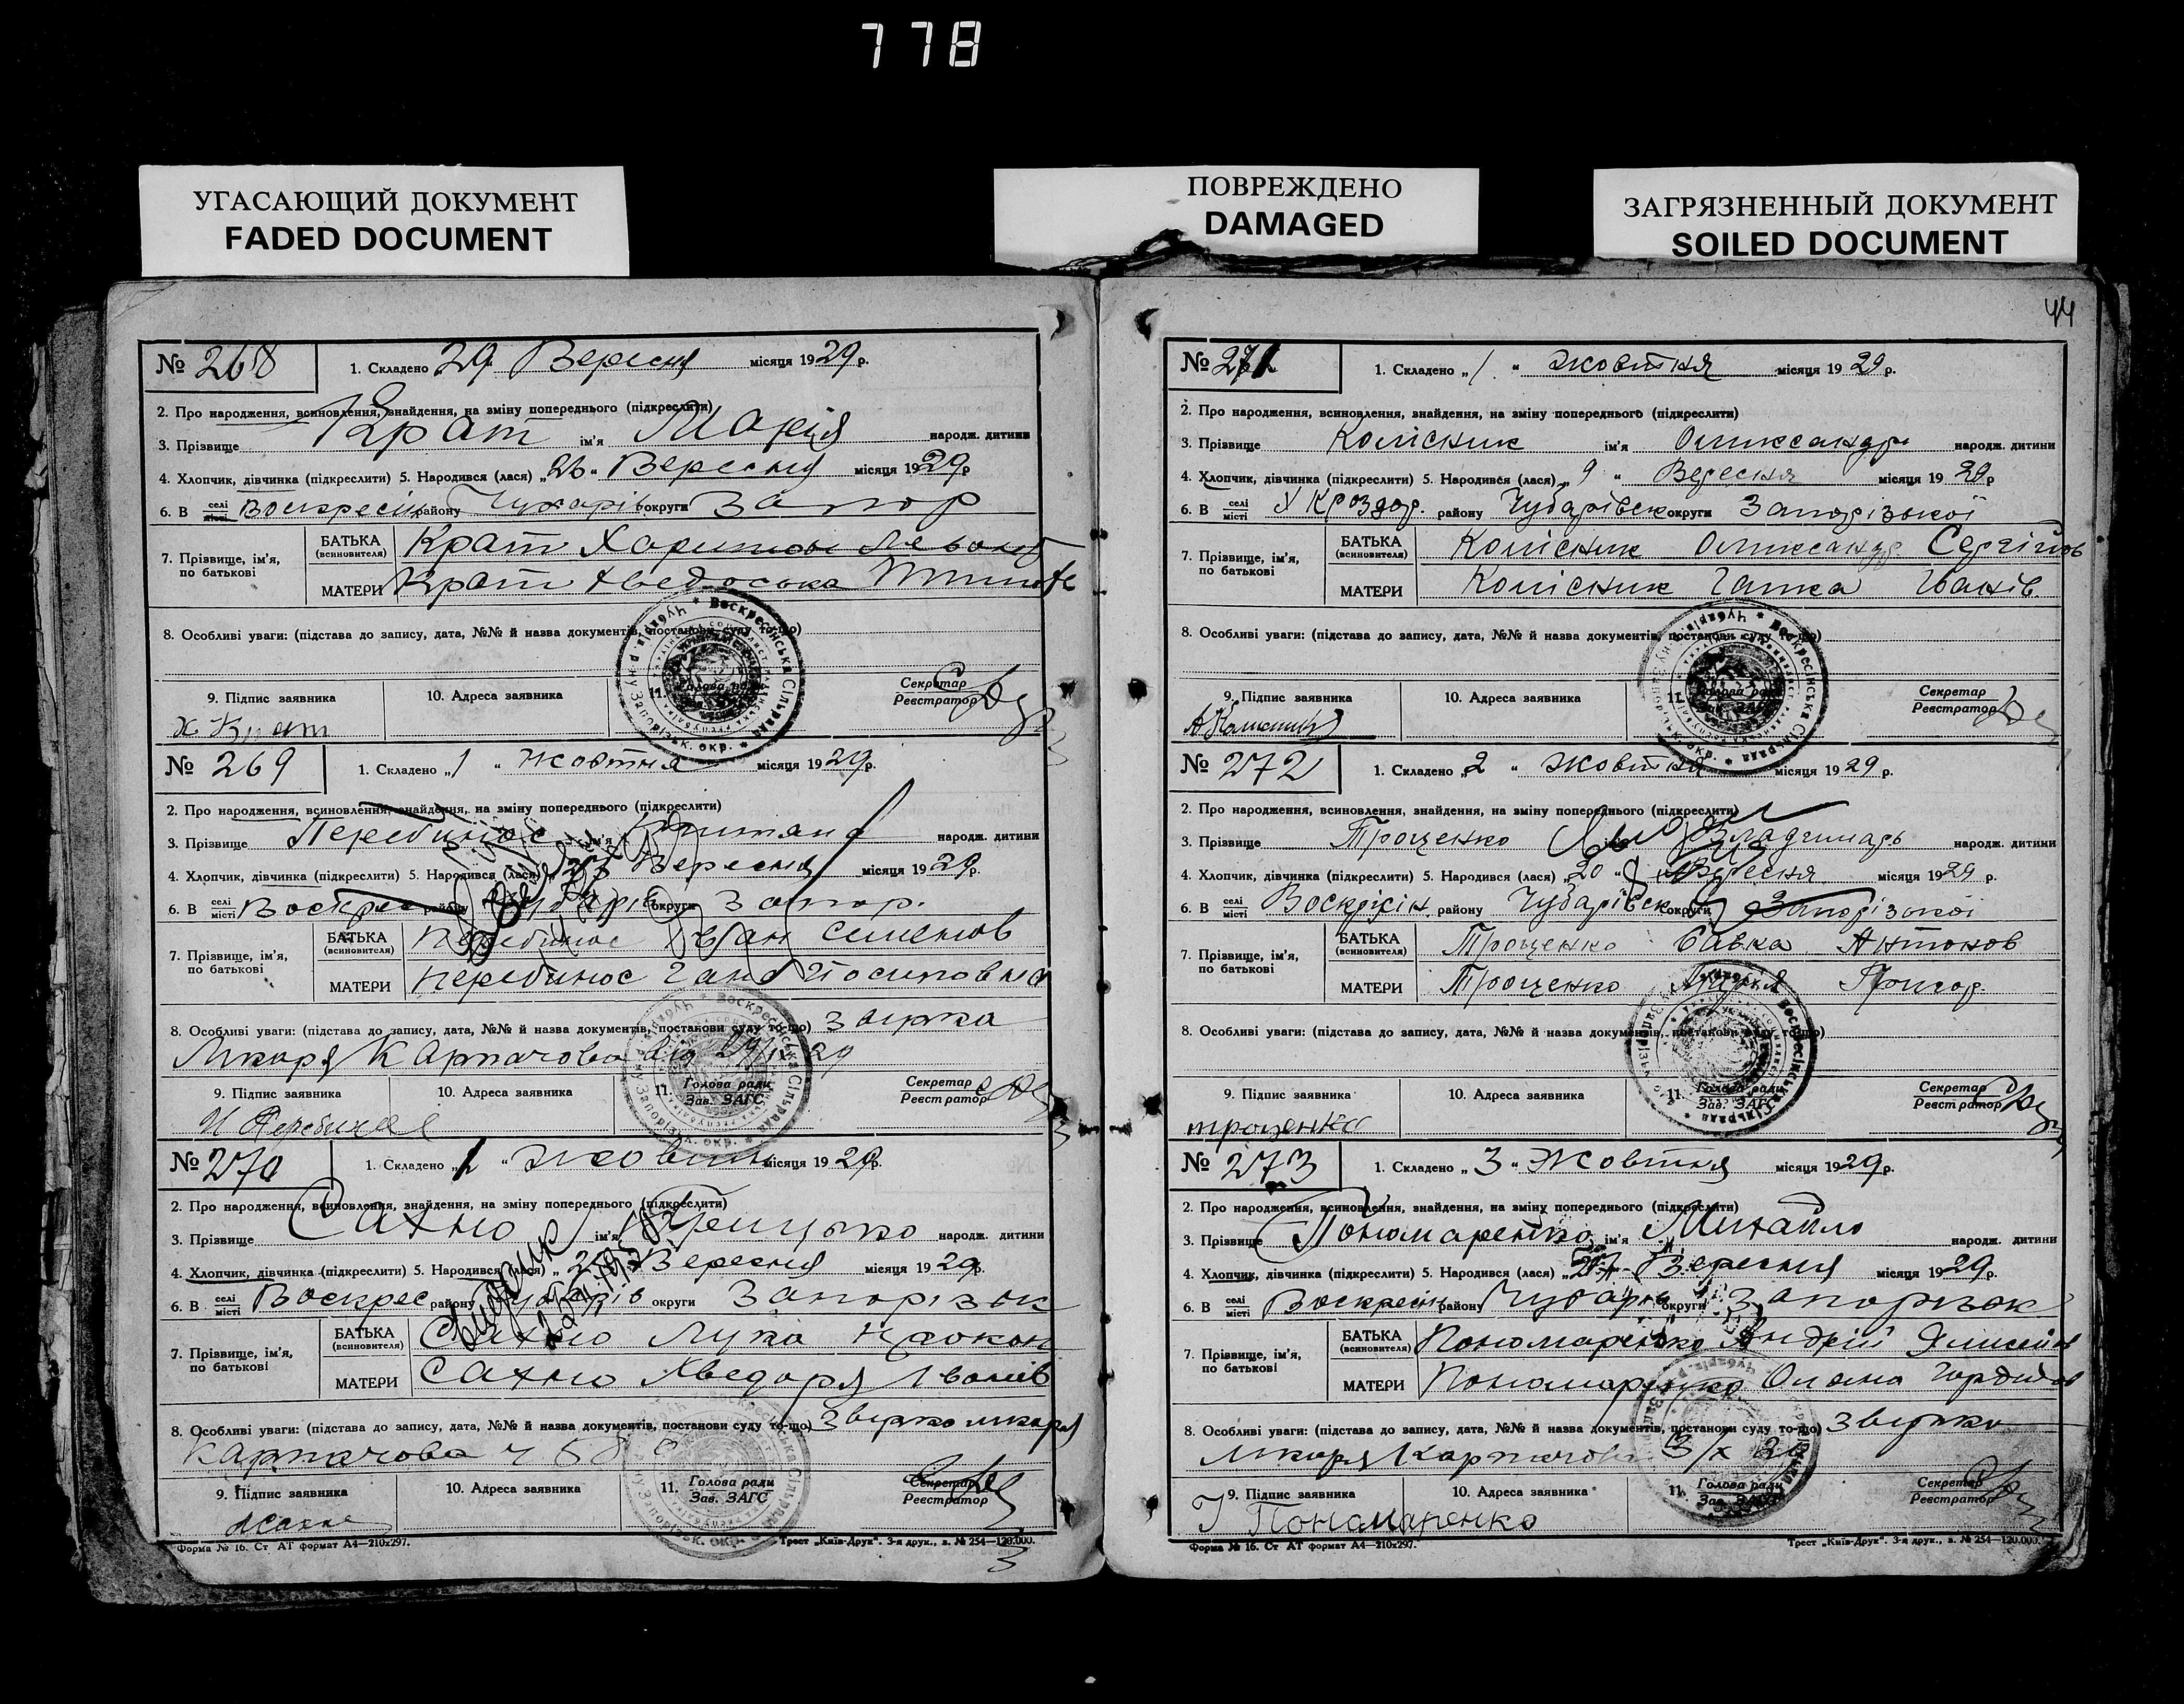 778
УГАСАЮЩИЙ ДОКУМЕНТ
FADED DOCUMENT
ПОВРЕЖДЕНО
DAMAGED
ЗАГРЯЗНЕННЫЙ ДОКУМЕНТ
SOILED DOCUMENT
№ 268 1. Складено „29 Вересня місяця 1929 р.
2. Про народження, всиновлення, знайдення, на зміну попереднього (підкреслити)
3. Прізвище Крат ім'я Марія народж. дитини
4. Хлопчик, дівчинка (підкреслити) 5. Народився (лася) „26" Вересня місяця 1929 р
6. В селі місті Воскресін району Чубарів округи Запор
7. Прізвище, ім'я, по батькові
БАТЬКА (всиновителя) Крат Харитон
МАТЕРИ Крат Хведоська
8. Особливі уваги: (підстава до запису, дата, №№ й назва документів, постанови суду то-що)
9. Підпис заявника 10. Адреса заявника 11. Голова ради Секретар Реєстратор
Х Крат
№ 269 1. Складено „1" Жовтня місяця 1929 р.
2. Про народження, всиновлення, знайдення, на зміну попереднього (підкреслити)
3. Прізвище Перебинос ім'я народж. дитини
4. Хлопчик, дівчинка (підкреслити) 5. Народився (лася) Вересня місяця 1929 р.
6. В селі місті Воскрес району Чубарів округи Запор.
7. Прізвище, ім'я, по батькові
БАТЬКА (всиновителя) Перебинос Іван Семенов
МАТЕРИ Перебинос Ганна Йосиповна
8. Особливі уваги: (підстава до запису, дата, №№ й назва документів, постанови суду то-що) Звірка
Лікаря Карпачова від 29/IX 29
9. Підпис заявника 10. Адреса заявника 11. Голова ради Зав. ЗАГС Секретар Реєстратор
№ 270 1. Складено „1" Жовтня місяця 1929 р.
2. Про народження, всиновлення, знайдення, на зміну попереднього (підкреслити)
3. Прізвище Сахно ім'я Грицько народж. дитини
4. Хлопчик, дівчинка (підкреслити) 5. Народився (лася) Вересня місяця 1929 р.
6. В селі місті Воскрес району Чубарів округи Запорізьк
7. Прізвище, ім'я, по батькові
БАТЬКА (всиновителя) Сахно Лука
МАТЕРИ Сахно Хведора Іванів
8. Особливі уваги: (підстава до запису, дата, №№ й назва документів, постанови суду то-що) Звірка лікаря
Карпачова
9. Підпис заявника 10. Адреса заявника 11. Голова ради Зав. ЗАГС Секретар Реєстратор
Форма № 16. Ст АТ формат А4—210х297. Трест „Київ-Друк". 3-я друк., з. № 254—120.000.
44
№ 271 1. Складено „1" жовтня місяця 1929 р.
2. Про народження, всиновлення, знайдення, на зміну попереднього (підкреслити)
3. Прізвище Колісник ім'я Олександр народж. дитини
4. Хлопчик, дівчинка (підкреслити) 5. Народився (лася) „9" Вересня місяця 1929 р
6. В селі місті району Чубарівськ округи Запорізької
7. Прізвище, ім'я, по батькові
БАТЬКА (всиновителя) Колісник Олександр Сергійов
МАТЕРИ Колісник Ганна Іванів
8. Особливі уваги: (підстава до запису, дата, №№ й назва документів, постанови суду то-що)
9. Підпис заявника 10. Адреса заявника 11. Голова ради Зав. ЗАГС Секретар Реєстратор
№ 272 1. Складено „2" жовтня місяця 1929 р.
2. Про народження, всиновлення, знайдення, на зміну попереднього (підкреслити)
3. Прізвище Троценко Владимирь народж. дитини
4. Хлопчик, дівчинка (підкреслити) 5. Народився (лася) „20" Вересня місяця 1929 р.
6. В селі місті Воскресін. району Чубарівськ округи Запорізької
7. Прізвище, ім'я, по батькові
БАТЬКА (всиновителя) Троценко Савка Антонов
МАТЕРИ Троценко Григор.
8. Особливі уваги: (підстава до запису, дата, №№ й назва документів, постанови суду то-що)
9. Підпис заявника 10. Адреса заявника 11. Голова ради Зав. ЗАГС Секретар Реєстратор
троценко
№ 273 1. Складено „3" Жовтня місяця 1929 р.
2. Про народження, всиновлення, знайдення, на зміну попереднього (підкреслити)
3. Прізвище Пономаренко ім'я Михайло народж. дитини
4. Хлопчик, дівчинка (підкреслити) 5. Народився (лася) Вересня місяця 1929 р.
6. В селі місті Воскресін району Чубарів округи Запорізьк
7. Прізвище, ім'я, по батькові
БАТЬКА (всиновителя) Пономаренко Андрій
МАТЕРИ Пономаренко Олена
8. Особливі уваги: (підстава до запису, дата, №№ й назва документів, постанови суду то-що) Звірка
Лікаря Карпачова 3/X 29
9. Підпис заявника 10. Адреса заявника 11. Голова ради Зав. ЗАГС Секретар Реєстратор
Пономаренко
Форма № 16. Ст АТ формат А4—210х297. Трест „Київ-Друк". 3-я друк., з. № 254—120.000.